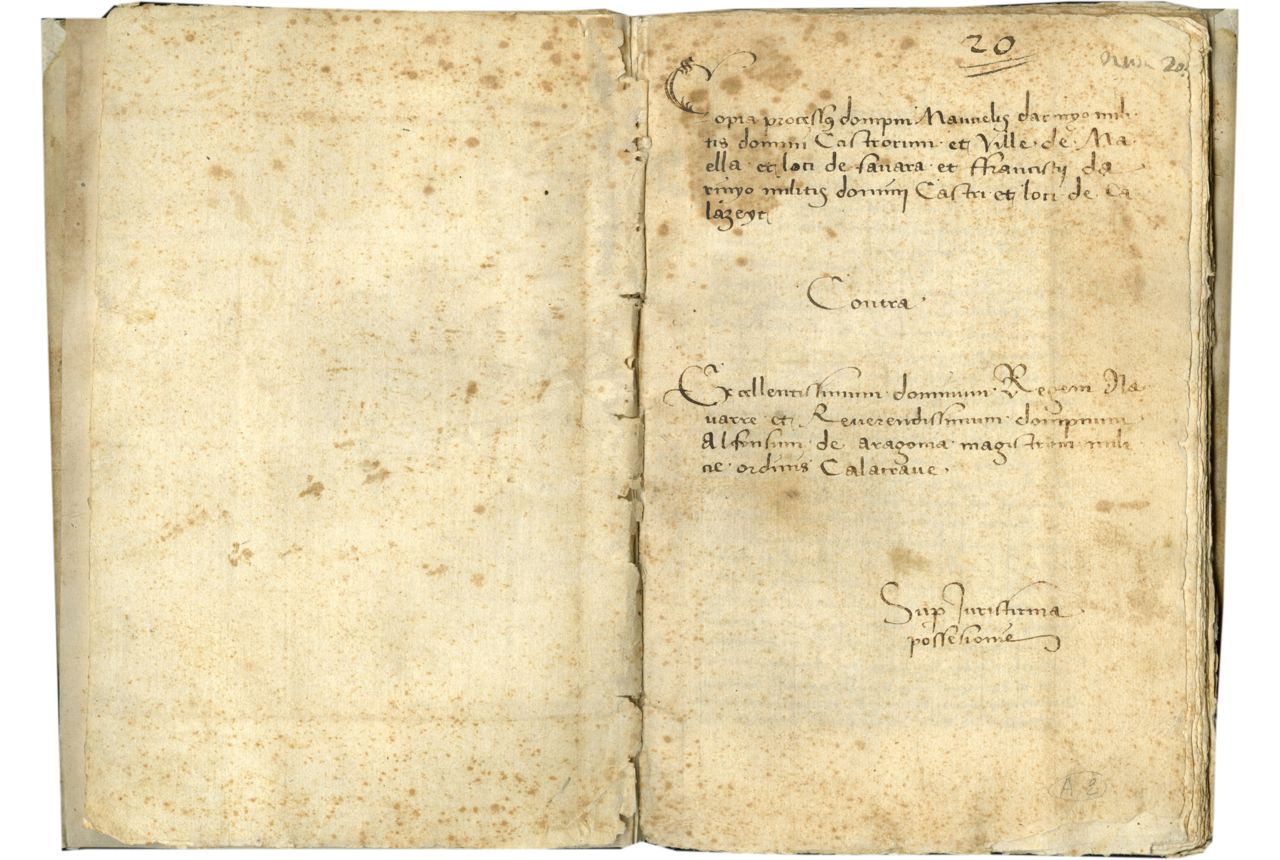 20
20
Copia processus dompni Manuelis darinyo mili
tis domini Castrorum et Ville de Ma
ella et loci de favara et ffrancisci da
rinyo militis domini Castri et loci de Ca
lazeyt
Contra
Excellentissimum dominum Regem Na
varre et Reverendissimum dompnum
Alfonsum de aragonia magistrum mili
cie ordinis Calatrave
Sup Juristirma
possesionis
A 2